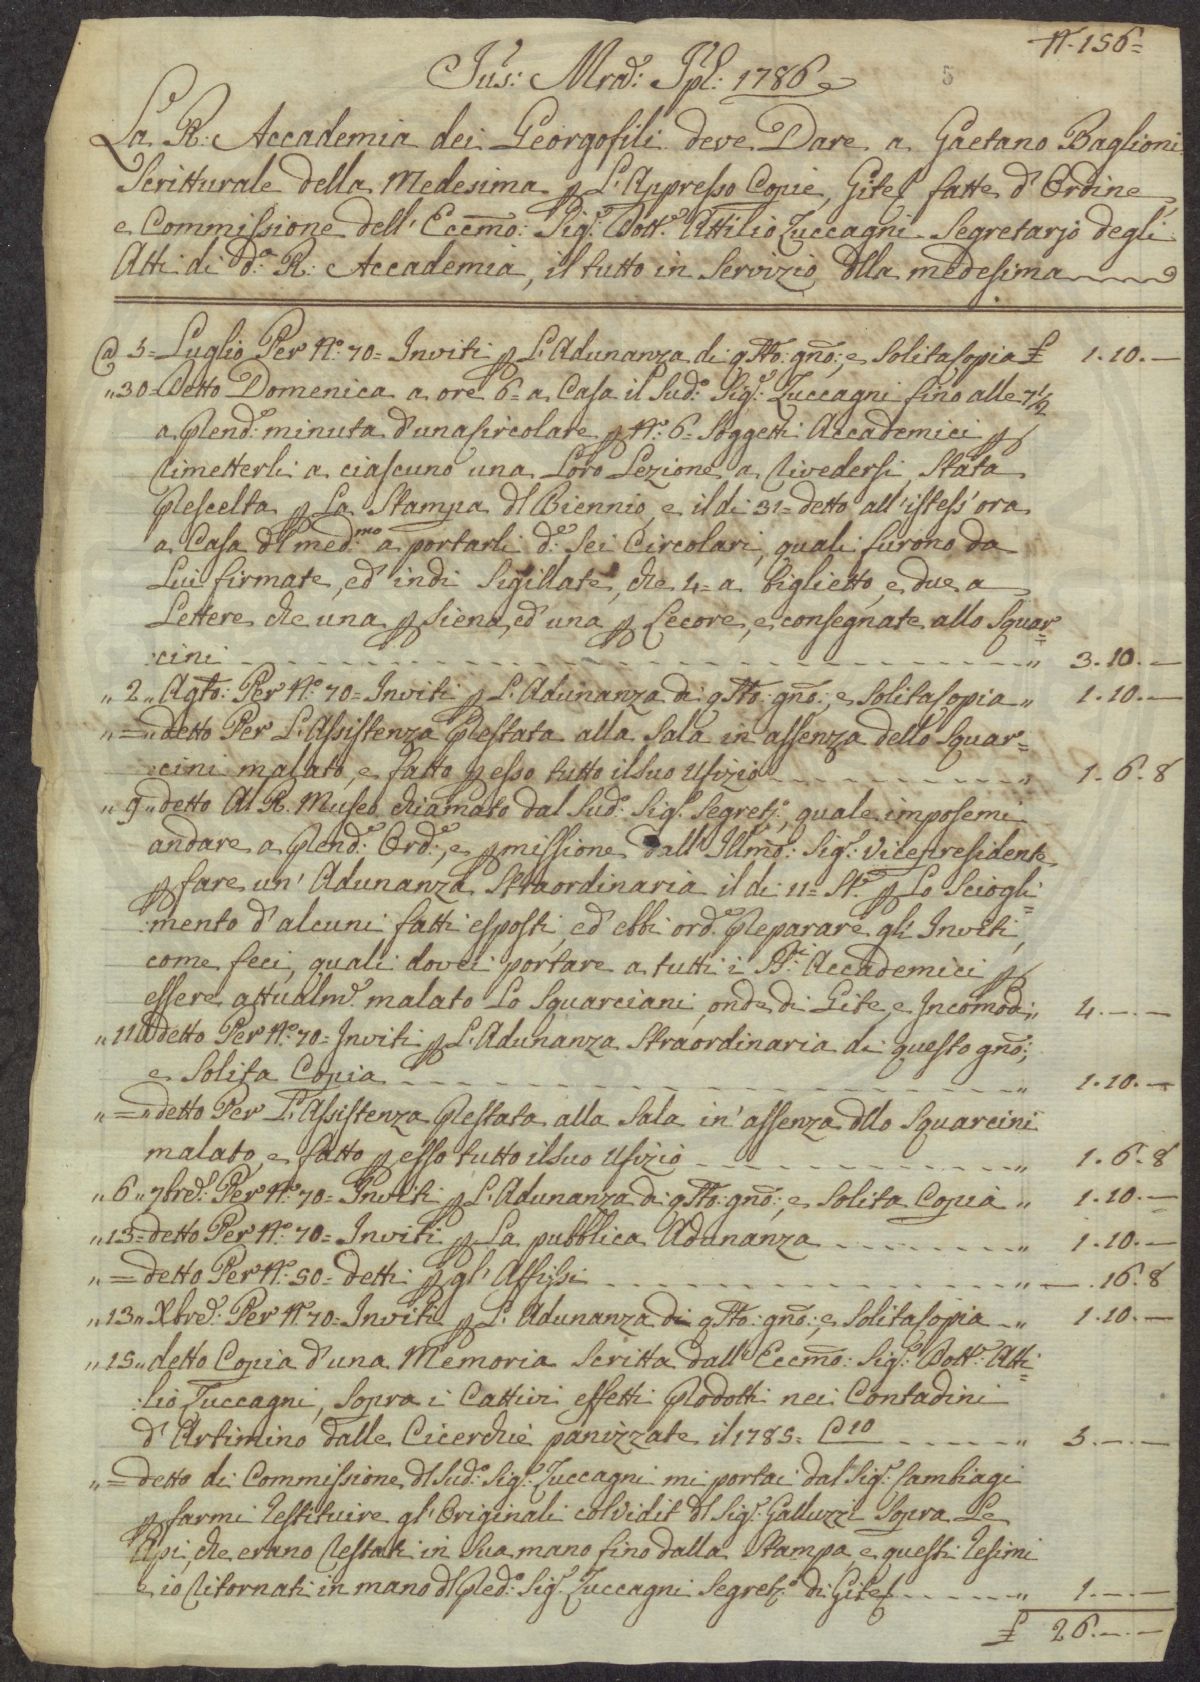 N. 156=
5
Jus: Mrd: Jpl: 1786
La R: Accademia dei Georgofili deve Dare a Gaetano Baglioni
Scritturale della Medesima p L'Appresso Copie, Gite fatte d'Ordine,
e Commissione dell' Eccmo: Sig.r Dott.e Attilio Zuccagni Segretario degli
Atti di d.a R: Accademia, il tutto in Servizio dlla medesima
@ 5= Luglio Per N.o 70= Inviti p L'Adunanza di qsto: gno:, e Solita Copia £ 1.10.—
„ 30= Detto Domenica a ore 6= a Casa il Sud.o Sig.r Zuccagni fino alle 7½
a Prend.e minuta d'una Circolare p N.o 6= Soggetti Accademici p
rimetterli a ciascuno una Loro Lezione a rivedersi, Stata
Prescelta p La Stampa dl Biennio, e il di 31= detto all'istess'ora
a Casa dl med.mo a portarli d.e Sei Circolari, quali furono da
Lui firmate, ed indi Sigillate, che 4= a biglietto, e due a
Lettere che una p Siena, ed una p Lecore, e consegnate allo Squar=
:cini „ 3.10.—
„ 2 „ Agto: Per N.o 70= Inviti p L'Adunanza di qsto: gno:, e Solita Copia „ 1.10.—
„ = „ detto Per L'Assistenza Prestata alla Sala in assenza dello Squar=
:cini malato, e fatto p esso tutto il suo Ufizio „ 1.6.8
„ 9 „ detto Al R. Museo chiamato dal Sud.o Sig.r Segret.o, quale impose mi
andare a Prend.e Ord.e, e pmissione dall' Illmo: Sig.r Vicepresidente,
p fare un' Adunanza Straordinaria il di 11= St.e p Lo Sciogli=
:mento d'alcuni fatti esposti, ed ebbi ord.e Preparare gli Inviti,
come feci, quali dovei portare a tutti i SS.ri Accademici p
essere attualm.e malato Lo Squarciani, onde di Gite, e Incomodi „ 4.—.—
„ 11 „ detto Per N.o 70= Inviti p L'Adunanza Straordinaria di questo gno:,
e Solita Copia „ 1.10.—
„ = „ detto Per L'Assistenza Prestata alla Sala in' assenza dllo Squarcini
malato, e fatto p esso tutto il suo Ufizio „ 1.6.8
„ 6 „ 7bre: Per N.o 70= Inviti p L'Adunanza di qsto: gno:, e Solita Copia „ 1.10.—
„ 13= detto Per N.o 70= Inviti p La pubblica Adunanza „ 1.10.—
„ = detto Per N.o 50= detti p gl' Affissi „ —.16.8
„ 13 „ Xbre: Per N.o 70= Inviti p L'Adunanza di qsto: gno:, e Solita Copia „ 1.10.—
„ 15 „ detto Copia d'una Memoria Scritta dall' Eccmo: Sig.r Dott.r Atti=
:lio Zuccagni, Sopra i Cattivi effetti Prodotti nei Contadini
d'Artimino dalle Cicerchie panizzate il 1785= C 10 „ 5.—.—
„ = detto di Commissione dl Sud.o Sig.r Zuccagni mi portai dal Sig.r Cambiagi
p farmi restituire gl' Originali col vidit dl Sig.r Galluzzi Sopra Le
Api, che erano restati in Sua mano fino dalla Stampa e questi resimi
e io ritornati in mano dl Pred.o Sig.r Zuccagni Segret.o di Gite „ 1.—.—
£ 26.—.—